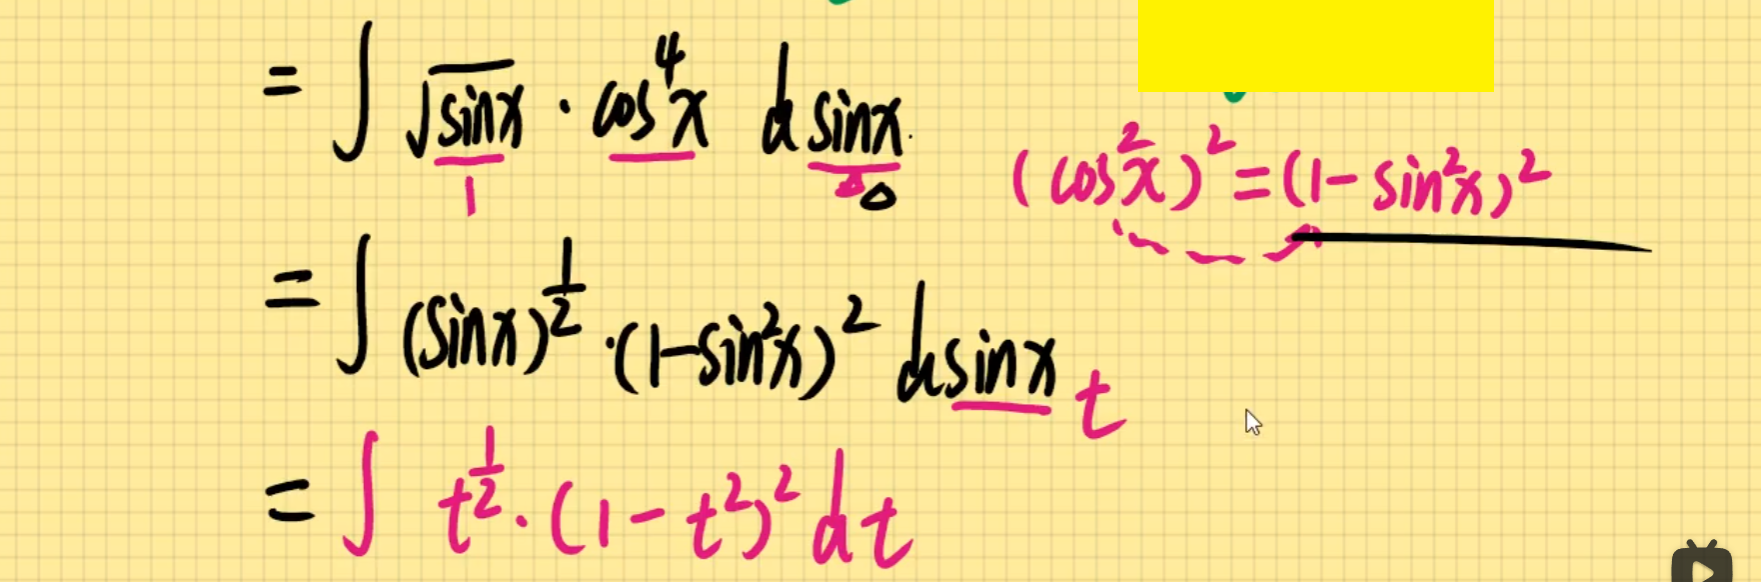 = ∫ √sinx · cos⁴x dsinx
1
(cos²x)² = (1 - sin²x)²
= ∫ (sinx)^{1/2} · (1 - sin²x)² dsinx t
= ∫ t^{1/2} · (1 - t²)² dt